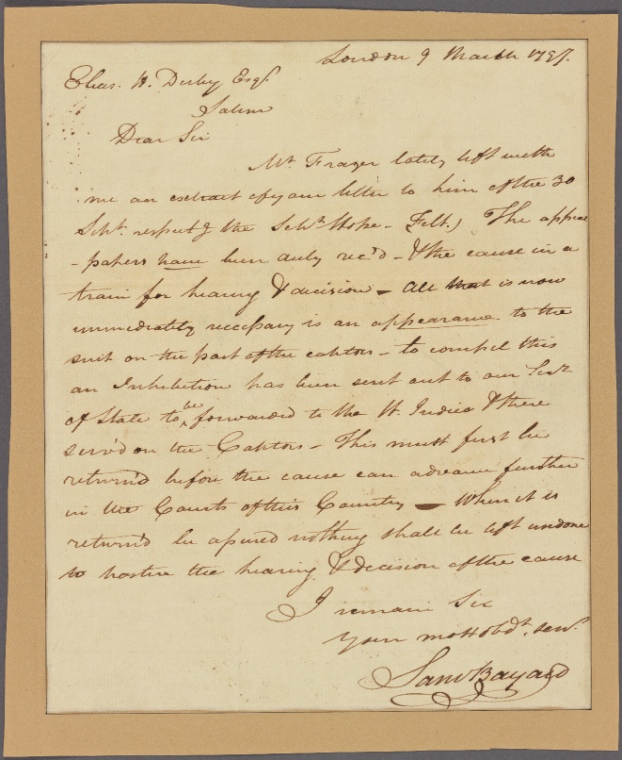 London 9 March 1797.
Elias. H. Derby Esqr.
Salem
Dear Sir
Mr. Frazer lately left with
me an extract of your letter to him of the 30
Sepbr. respectg the Schr. Hope - Felt.) The appeal
- papers have been duly rec'd - & the cause in a
train for hearing & decision - All that is now
immediately necessary is an appearance to the
suit on the part of the captors - to compel this
an Inhibition has been sent out to our Secr.
of State to be forwarded to the W. Indies & there
serv'd on the Captors - This must first be
return'd before the cause can advance further
in the Courts of this Country - When it is
return'd be assured nothing shall be left undone
to hasten the hearing & decision of the cause
I remain Sir
Your most obdt. serv.
Saml Bayard